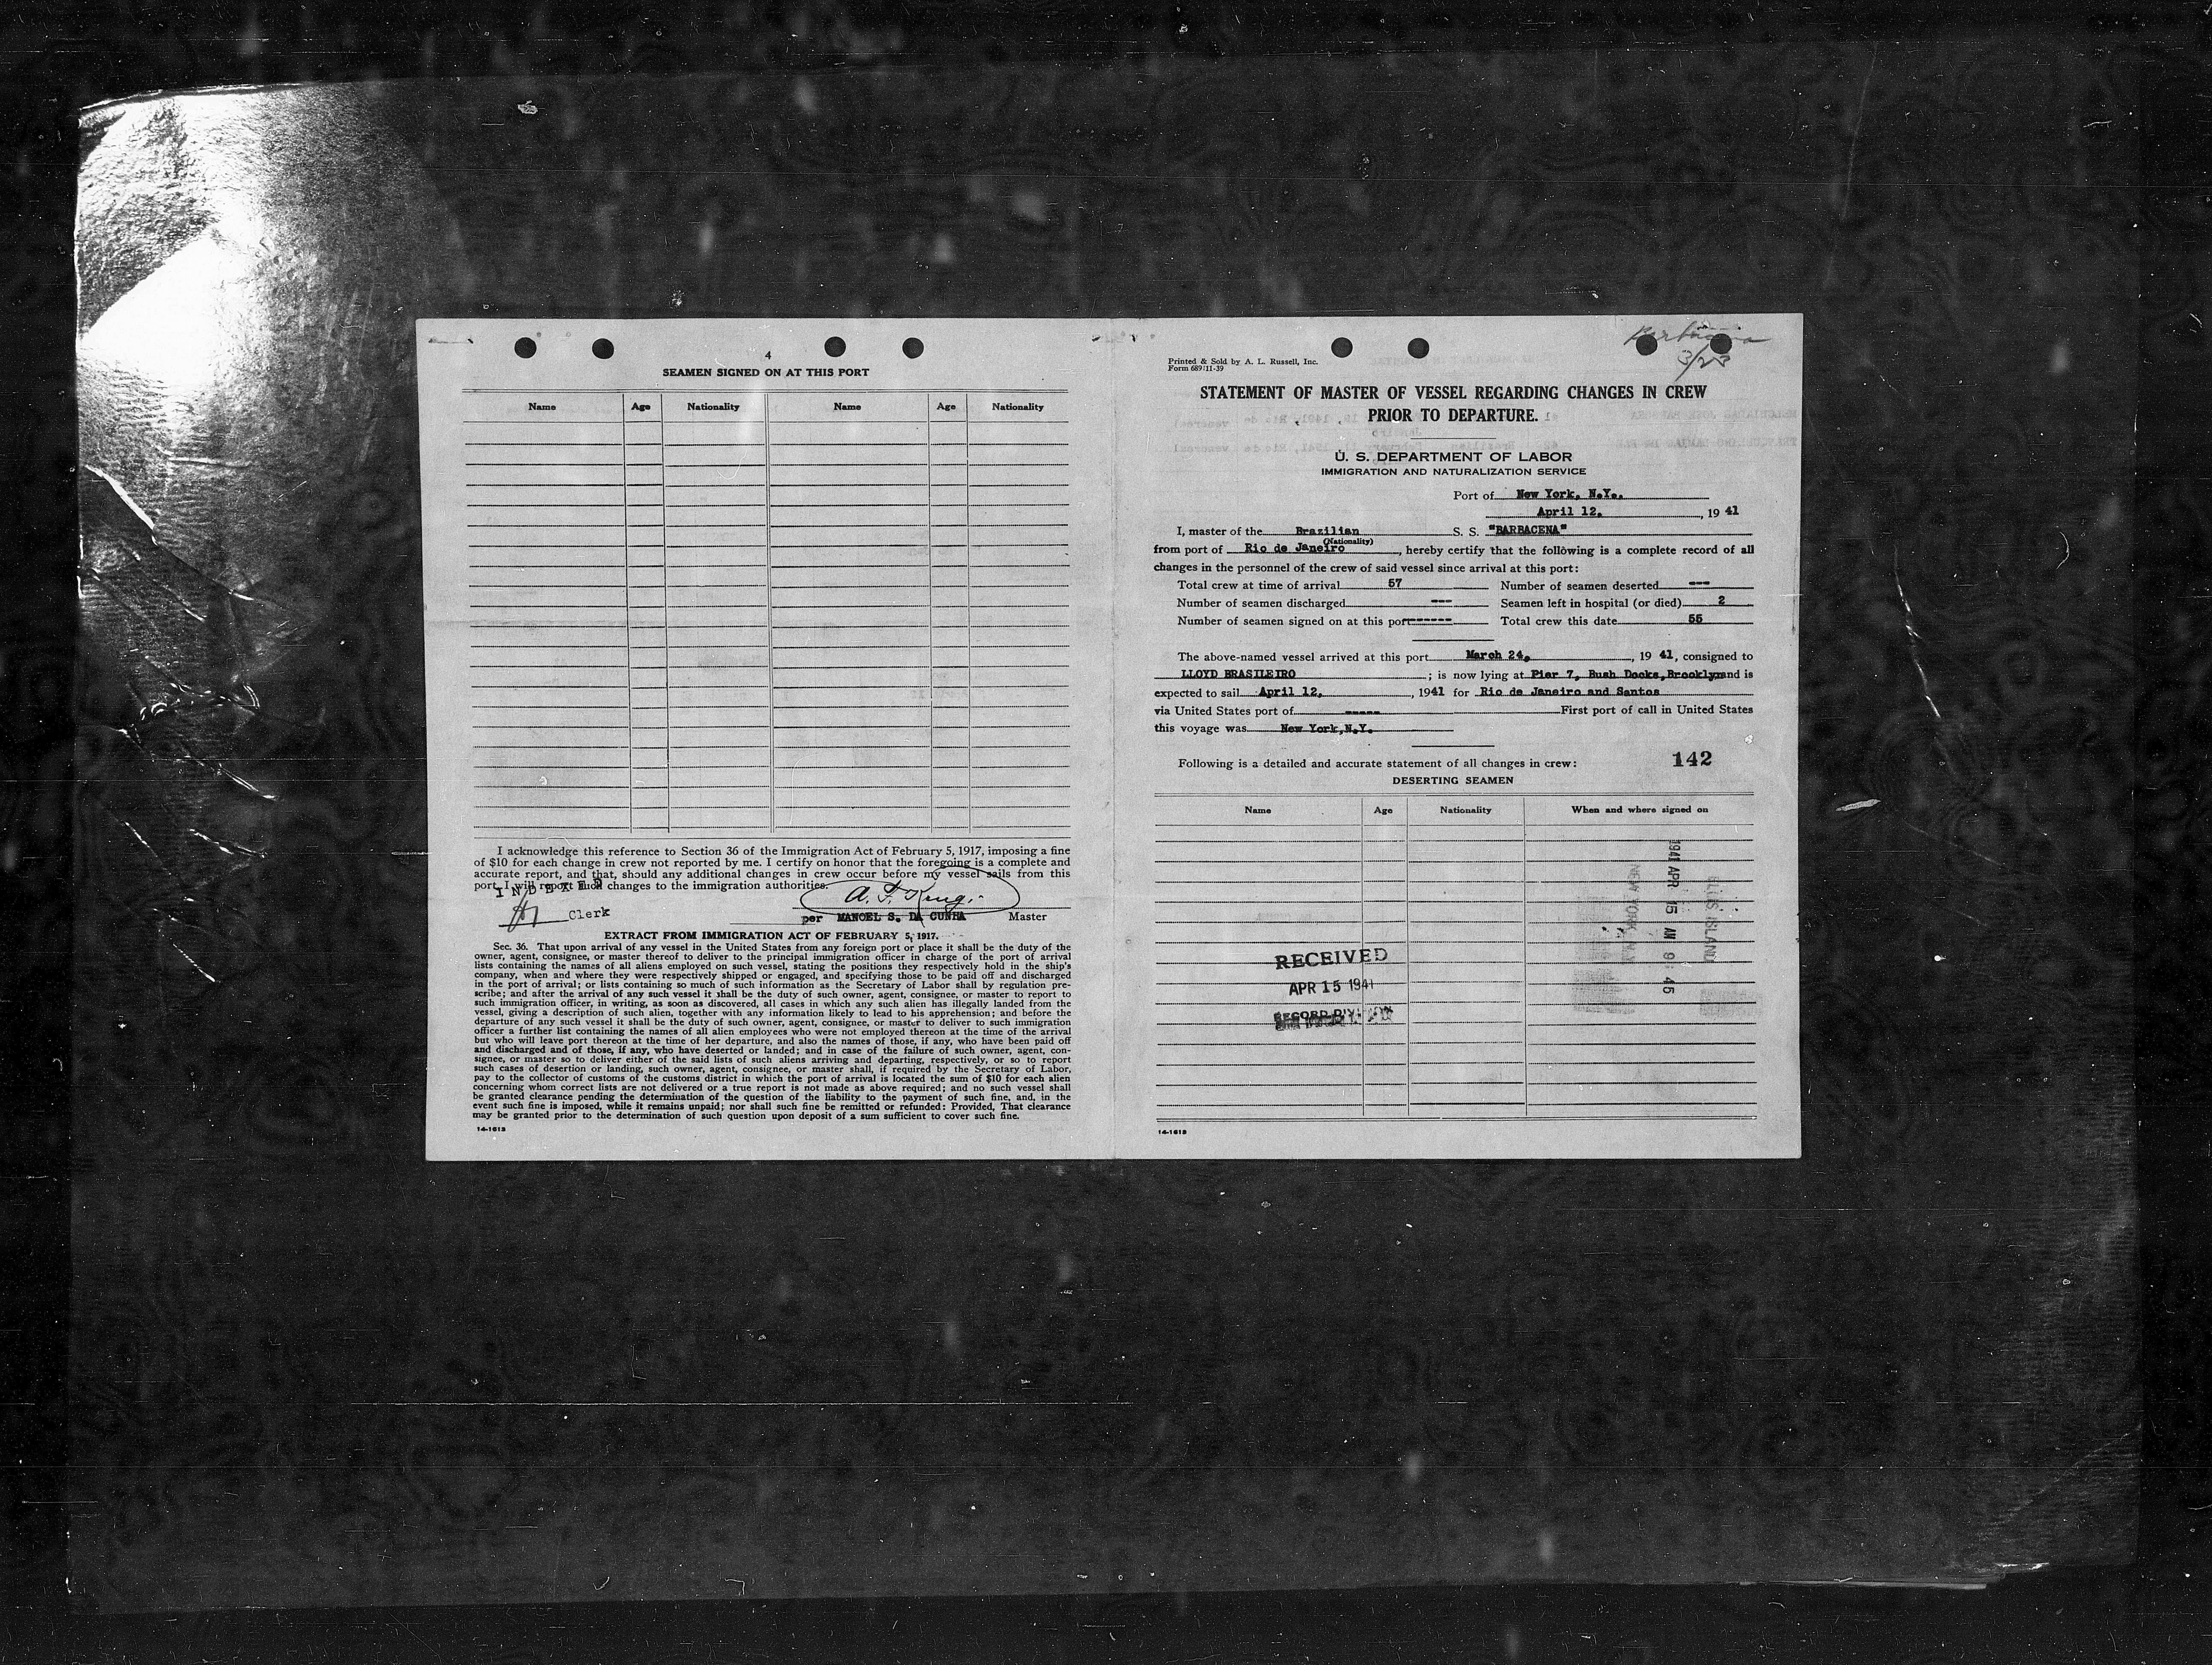 4
SEAMEN SIGNED ON AT THIS PORT
Name Age Nationality Name Age Nationality
I acknowledge this reference to Section 36 of the Immigration Act of February 5, 1917, imposing a fine
of $10 for each change in crew not reported by me. I certify on honor that the foregoing is a complete and
accurate report, and that, should any additional changes in crew occur before my vessel sails from this
port, I will report such changes to the immigration authorities.
INDEXED
Clerk
A. F. King.
per MANOEL S. DA CUNHA Master
EXTRACT FROM IMMIGRATION ACT OF FEBRUARY 5, 1917.
Sec. 36. That upon arrival of any vessel in the United States from any foreign port or place it shall be the duty of the
owner, agent, consignee, or master thereof to deliver to the principal immigration officer in charge of the port of arrival
lists containing the names of all aliens employed on such vessel, stating the positions they respectively hold in the ship's
company, when and where they were respectively shipped or engaged, and specifying those to be paid off and discharged
in the port of arrival; or lists containing so much of such information as the Secretary of Labor shall by regulation pre-
scribe; and after the arrival of any such vessel it shall be the duty of such owner, agent, consignee, or master to report to
such immigration officer, in writing, as soon as discovered, all cases in which any such alien has illegally landed from the
vessel, giving a description of such alien, together with any information likely to lead to his apprehension; and before the
departure of any such vessel it shall be the duty of such owner, agent, consignee, or master to deliver to such immigration
officer a further list containing the names of all alien employees who were not employed thereon at the time of the arrival
but who will leave port thereon at the time of her departure, and also the names of those, if any, who have been paid off
and discharged and of those, if any, who have deserted or landed; and in case of the failure of such owner, agent, con-
signee, or master so to deliver either of the said lists of such aliens arriving and departing, respectively, or so to report
such cases of desertion or landing, such owner, agent, consignee, or master shall, if required by the Secretary of Labor,
pay to the collector of customs of the customs district in which the port of arrival is located the sum of $10 for each alien
concerning whom correct lists are not delivered or a true report is not made as above required; and no such vessel shall
be granted clearance pending the determination of the question of the liability to the payment of such fine, and, in the
event such fine is imposed, while it remains unpaid; nor shall such fine be remitted or refunded: Provided, That clearance
may be granted prior to the determination of such question upon deposit of a sum sufficient to cover such fine.
14-1613
Barbacena
3/23
Printed & Sold by A. L. Russell, Inc.
Form 689 11-39
STATEMENT OF MASTER OF VESSEL REGARDING CHANGES IN CREW
PRIOR TO DEPARTURE.
U. S. DEPARTMENT OF LABOR
IMMIGRATION AND NATURALIZATION SERVICE
Port of New York, N.Y.,
April 12, , 19 41
I, master of the Brazilian S. S. "BARBACENA"
(Nationality)
from port of Rio de Janeiro , hereby certify that the following is a complete record of all
changes in the personnel of the crew of said vessel since arrival at this port:
Total crew at time of arrival 57 Number of seamen deserted ---
Number of seamen discharged --- Seamen left in hospital (or died) 2
Number of seamen signed on at this port ------ Total crew this date 55
The above-named vessel arrived at this port March 24, , 19 41, consigned to
LLOYD BRASILEIRO ; is now lying at Pier 7, Bush Docks, Brooklyn and is
expected to sail April 12, , 1941 for Rio de Janeiro and Santos
via United States port of ----- First port of call in United States
this voyage was New York, N.Y.
Following is a detailed and accurate statement of all changes in crew: 142
DESERTING SEAMEN
Name Age Nationality When and where signed on
1941 APR 15 AM 9 45
ELLIS ISLAND
NEW YORK
RECEIVED
APR 15 1941
RECORD DIVISION
14-1613